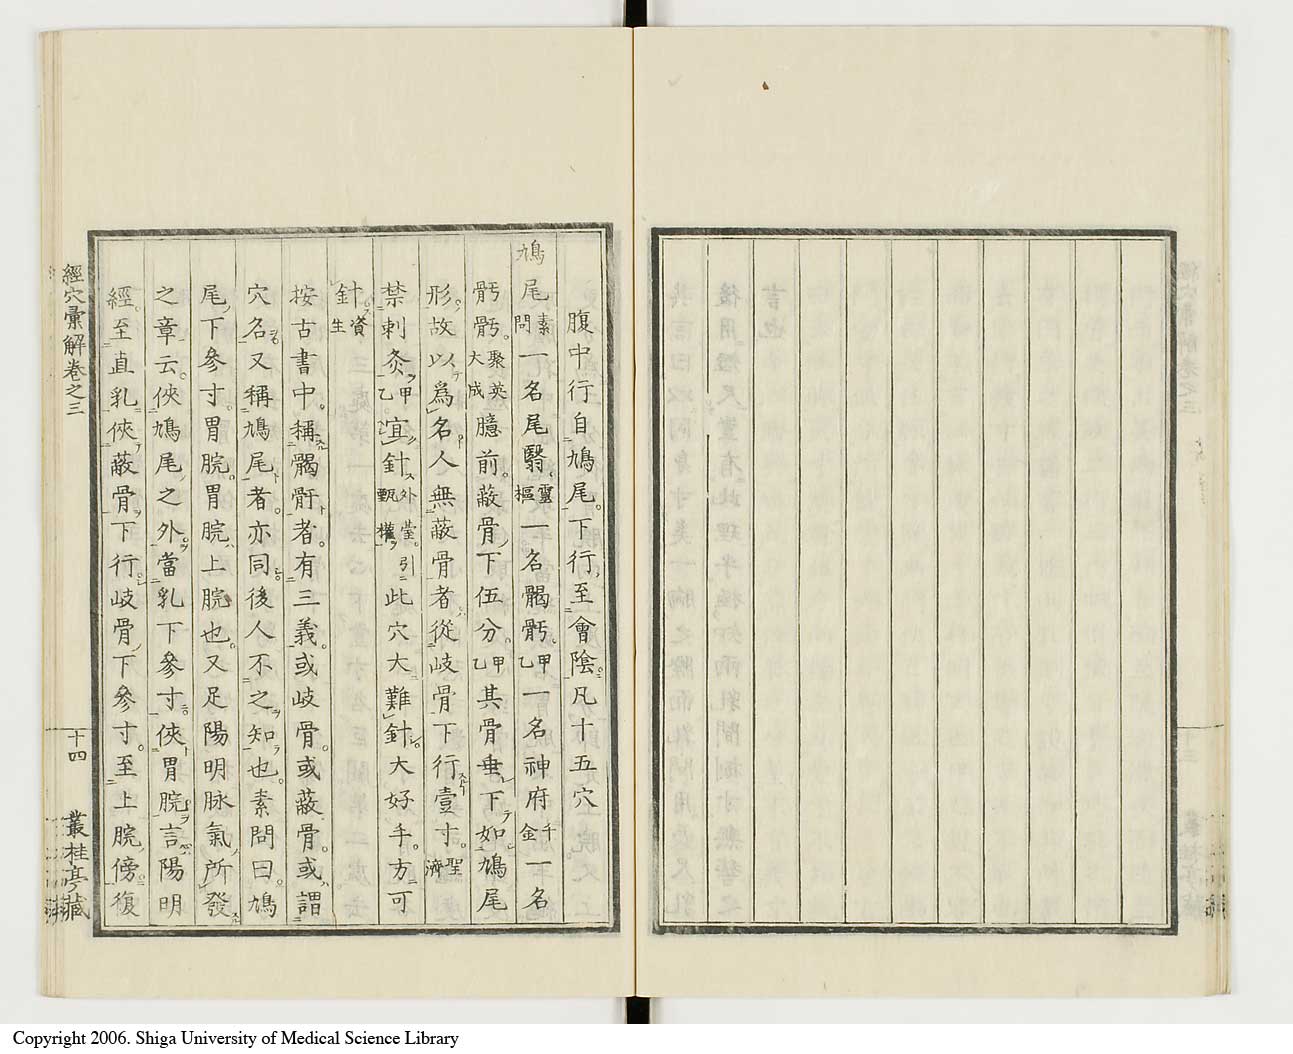 腹中行自鳩尾。下行至會陰。凡十五穴
鳩尾素問一名尾翳。靈樞一名𩩲骬。甲乙一名神府千金一名
骬骬。聚英大成臆前。蔽骨下伍分。甲乙其骨垂下如鳩尾
形。故以為名。人無蔽骨者。從岐骨下行壹寸。聖濟
禁刺灸甲乙宜針外臺引甄權此穴大難針。大好手。方可
針。資生
按古書中。稱𩩲骬者。有三義。或岐骨。或蔽骨。或謂
穴名又稱鳩尾者。亦同。後人不之知也。素問曰。鳩
尾下參寸。胃脘。胃脘。上脘也。又足陽明脉氣所發
之章云。俠鳩尾之外。當乳下參寸。俠胃脘。言陽明
經。至直乳。俠蔽骨。下行。岐骨下參寸。至上脘傍。復
經穴彙解卷之三
十四
叢桂亭藏
Copyright 2006. Shiga University of Medical Science Library